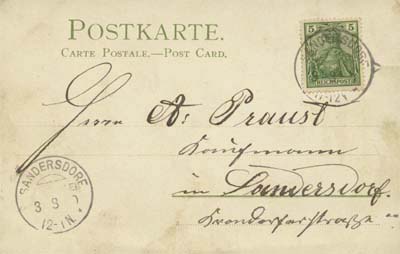 POSTKARTE.
CARTE POSTALE.—POST CARD.
5 5
REICHSPOST
11-12V
Herrn A. Praust
Kaufmann
in Sandersdorf.
SANDERSDORF
3 9
12-1N.